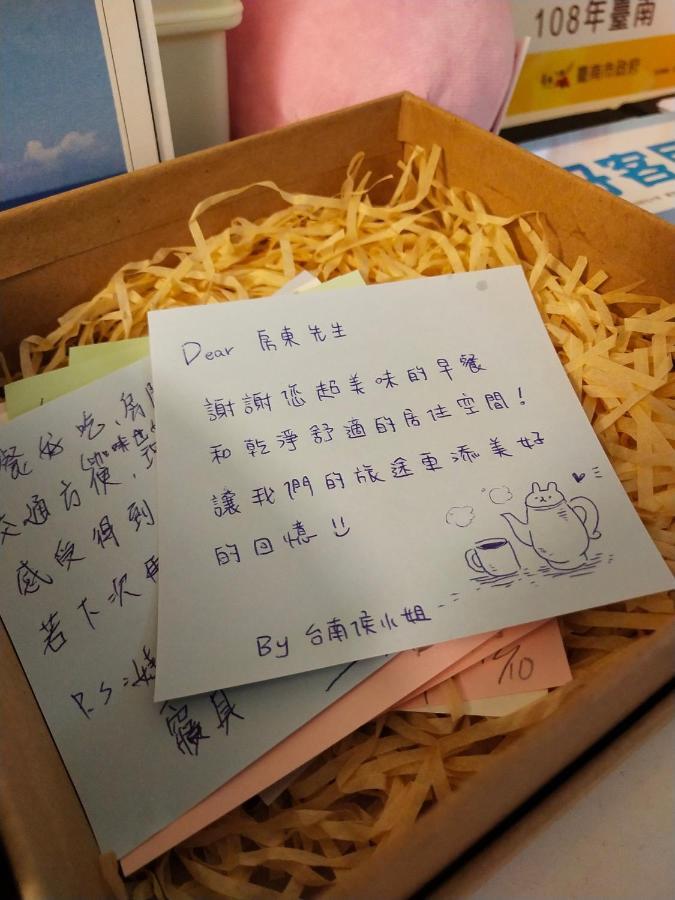 108年臺南
臺南市政府
好客民
Dear 房東先生
謝謝您超美味的早餐
和乾淨舒適的居住空間！
讓我們的旅途車添美好
的回憶
By 台南侯小姐
餐好吃、房
交通方便，
感受得到
若下次再
P.S：
寢具
/10